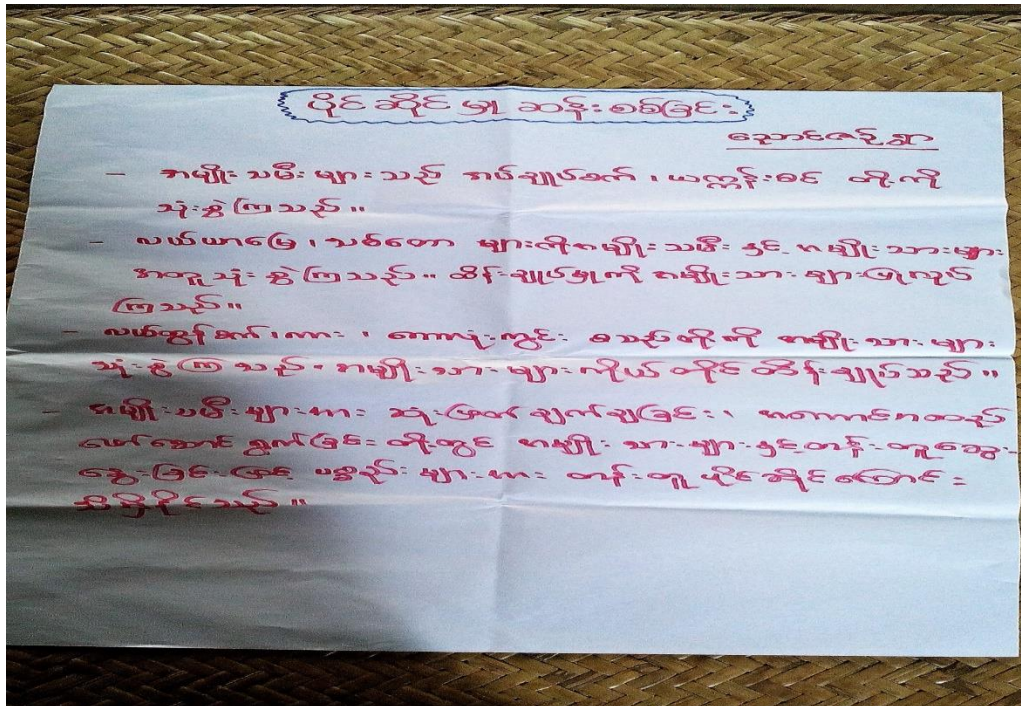 ပိုင်ဆိုင်မှု ဆန်းစစ်ခြင်း
ညောင်ဇဉ်ရွာ
- အမျိုးသမီးများသည် အပ်ချုပ်စက်၊ ယက္ကန်းစင် တို့ကို
သုံးစွဲကြသည်။
- လယ်ယာမြေ၊ သစ်တော များကိုအမျိုးသမီးနှင့် အမျိုးသားများ
အတူသုံးစွဲကြသည်။ ထိန်းချုပ်မှုကို အမျိုးသားများပြုလုပ်
ကြသည်။
- လယ်ထွန်စက်၊ ကား၊ ဘောလုံးကွင်း စသည်တို့ကို အမျိုးသားများ
သုံးစွဲကြသည်။ အမျိုးသားများကိုယ်တိုင်ထိန်းချုပ်သည်။
- အမျိုးသမီးများအား ဆုံးဖြတ်ချက်ချခြင်း၊ အကောင်အထည်
ဖော်ဆောင်ရွက်ခြင်းတို့တွင် အမျိုးသားများနှင့်တန်းတူဆွေး
နွေးခြင်းဖြင့် ပစ္စည်းများအား တန်းတူပိုင်ဆိုင်ကြောင်း
သိရှိနိုင်သည်။